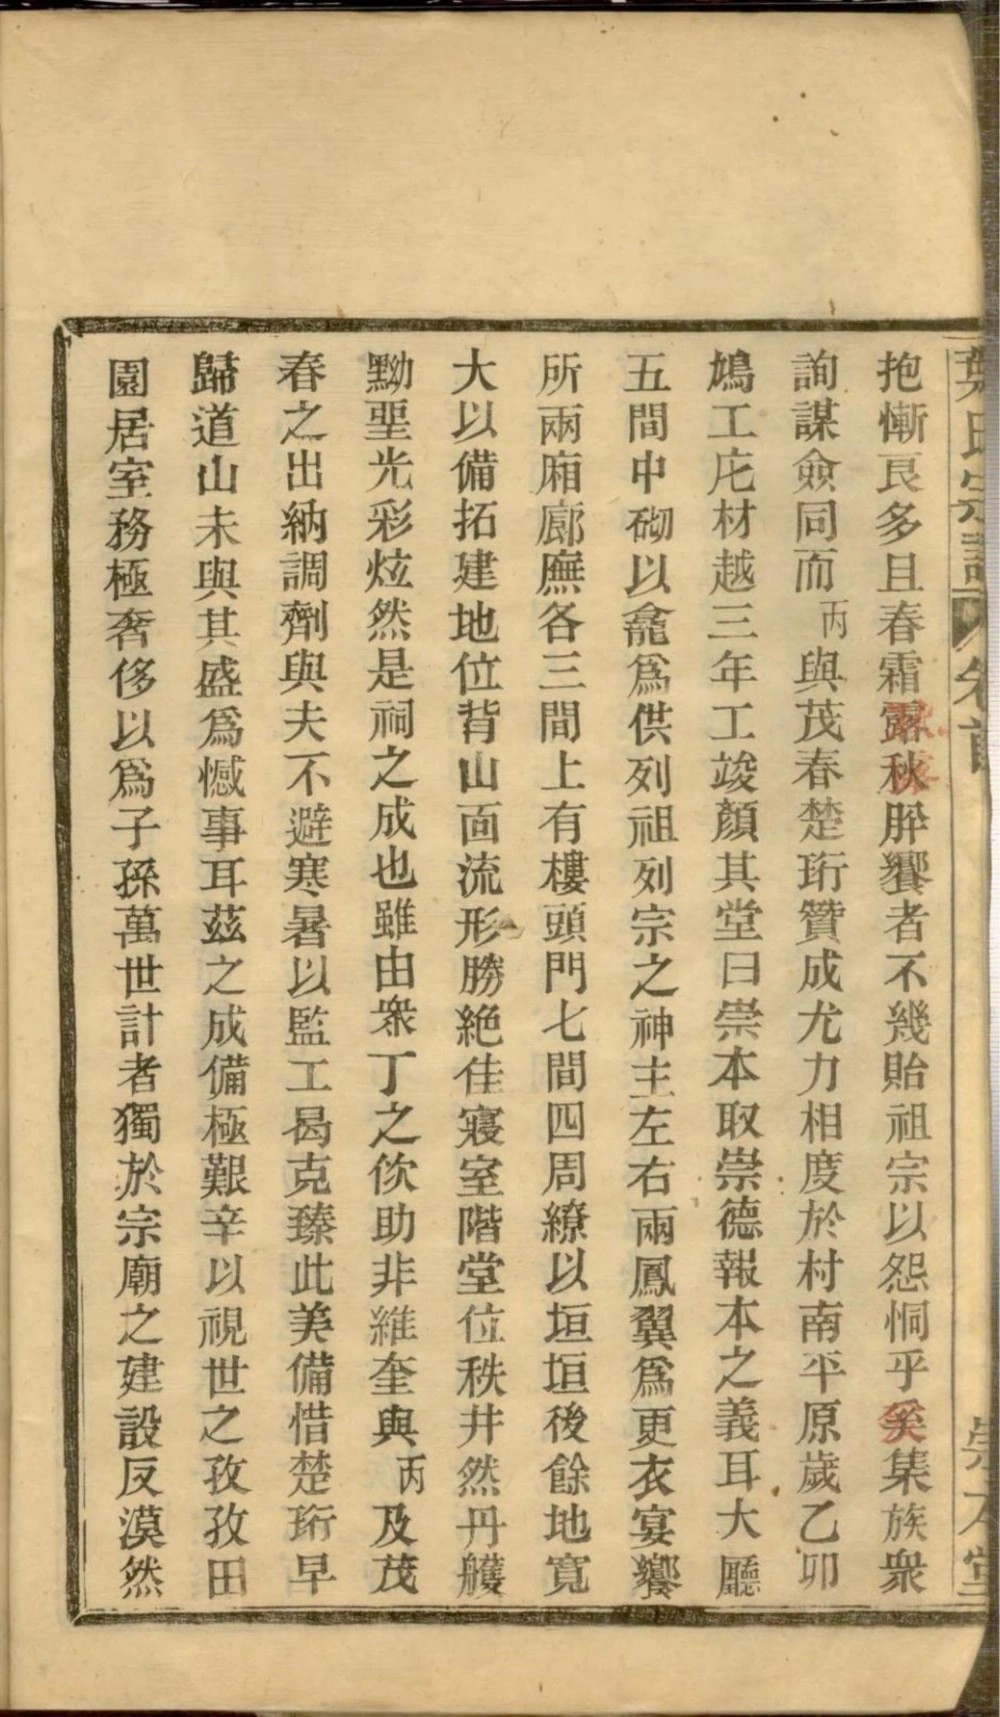 葉氏宗譜 卷首 崇本堂
抱慚良多且春霜露秋肸饗者不幾貽祖宗以怨恫乎爰集族衆
詢謀僉同而丙與茂春楚珩贊成尤力相度於村南平原歲乙卯
鳩工庀材越三年工竣顏其堂曰崇本取崇德報本之義耳大廳
五間中砌以龕爲供列祖列宗之神主左右兩鳳翼爲更衣宴饗
所兩廂廊廡各三間上有樓頭門七間四周繚以垣垣後餘地寬
大以備拓建地位背山面流形勝絶佳寢室階堂位秩井然丹雘
黝堊光彩炫然是祠之成也雖由衆丁之佽助非維奎與丙及茂
春之出納調劑與夫不避寒暑以監工曷克臻此美備惜楚珩早
歸道山未與其盛爲憾事耳茲之成備極艱辛以視世之孜孜田
園居室務極奢侈以爲子孫萬世計者獨於宗廟之建設反漠然